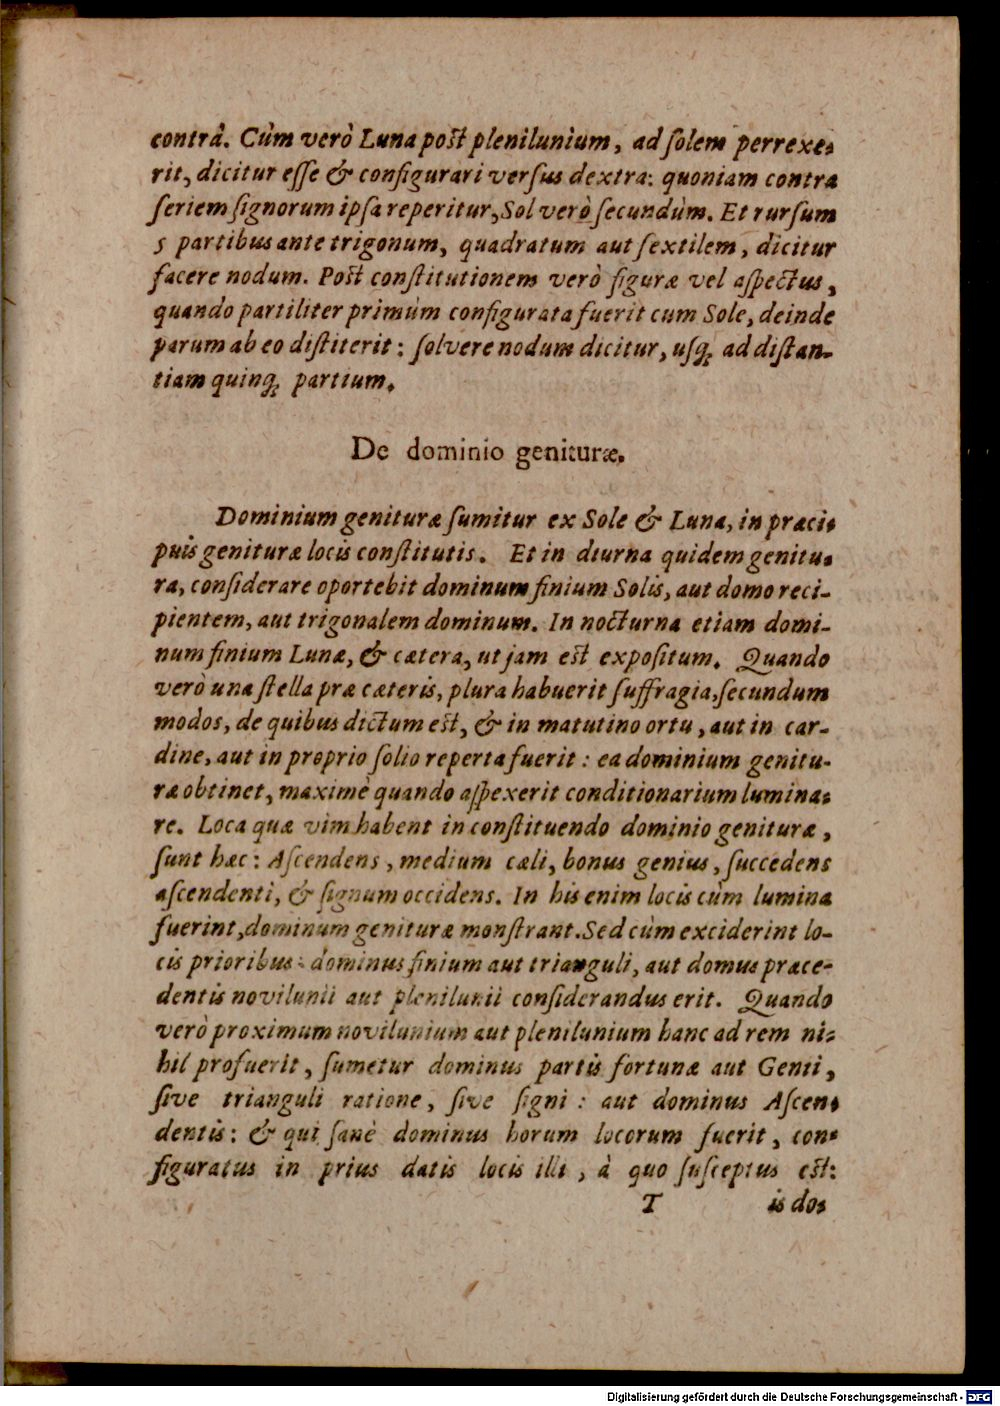 contrà. Cùm verò Luna post plenilunium, ad solem perrexe-
rit, dicitur esse & configurari versus dextra: quoniam contra
seriem signorum ipsa reperitur, Sol verò secundùm. Et rursum
5 partibus ante trigonum, quadratum aut sextilem, dicitur
facere nodum. Post constitutionem verò figuræ vel aspectus,
quando partiliter primùm configurata fuerit cum Sole, deinde
parum ab eo distiterit: solvere nodum dicitur, usq; ad distan-
tiam quinq; partium.
De dominio genituræ.
Dominium genituræ sumitur ex Sole & Luna, in præci-
puis genituræ locis constitutis. Et in diurna quidem genitu-
ra, considerare oportebit dominum finium Solis, aut domo reci-
pientem, aut trigonalem dominum. In nocturna etiam domi-
num finium Lunæ, & cætera, ut jam est expositum. Quando
verò una stella præ cæteris, plura habuerit suffragia, secundum
modos, de quibus dictum est, & in matutino ortu, aut in car-
dine, aut in proprio solio reperta fuerit: ea dominium genitu-
ræ obtinet, maximè quando aspexerit conditionarium lumina-
re. Loca quæ vim habent in constituendo dominio genituræ,
sunt hæc: Ascendens, medium cæli, bonus genius, succedens
ascendenti, & signum occidens. In his enim locis cùm lumina
fuerint, dominum genituræ monstrant. Sed cùm exciderint lo-
cis prioribus: dominus finium aut trianguli, aut domus præce-
dentis novilunii aut plenilunii considerandus erit. Quando
verò proximum novilunium aut plenilunium hanc ad rem ni-
hil profuerit, sumetur dominus partis fortunæ aut Genii,
sive trianguli ratione, sive signi: aut dominus Ascen-
dentis: & qui sanè dominus horum locorum fuerit, con-
figuratus in prius datis locis illi, à quo susceptus est:
T is do-
Digitalisierung gefördert durch die Deutsche Forschungsgemeinschaft - DFG